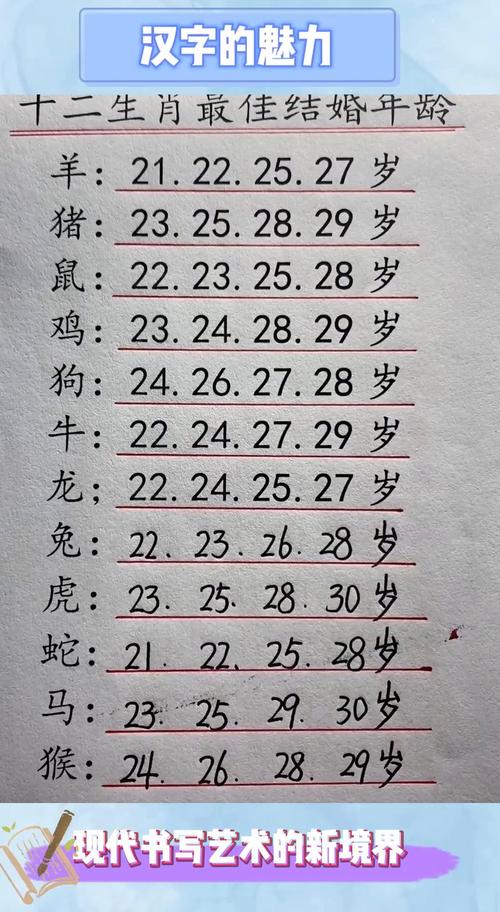 汉字的魅力
十二生肖最佳结婚年龄
羊：21.22.25.27岁
猪：23.25.28.29岁
鼠：22.23.25.28岁
鸡：23.24.28.29岁
狗：24.26.27.28岁
牛：22.24.27.29岁
龙；22.24.25.27岁
兔：22.23.26.28岁
虎：23.25.28.30岁
蛇：21.22.25.28岁
马：23.25.29.30岁
猴：24.26.28.29岁
现代书写艺术的新境界